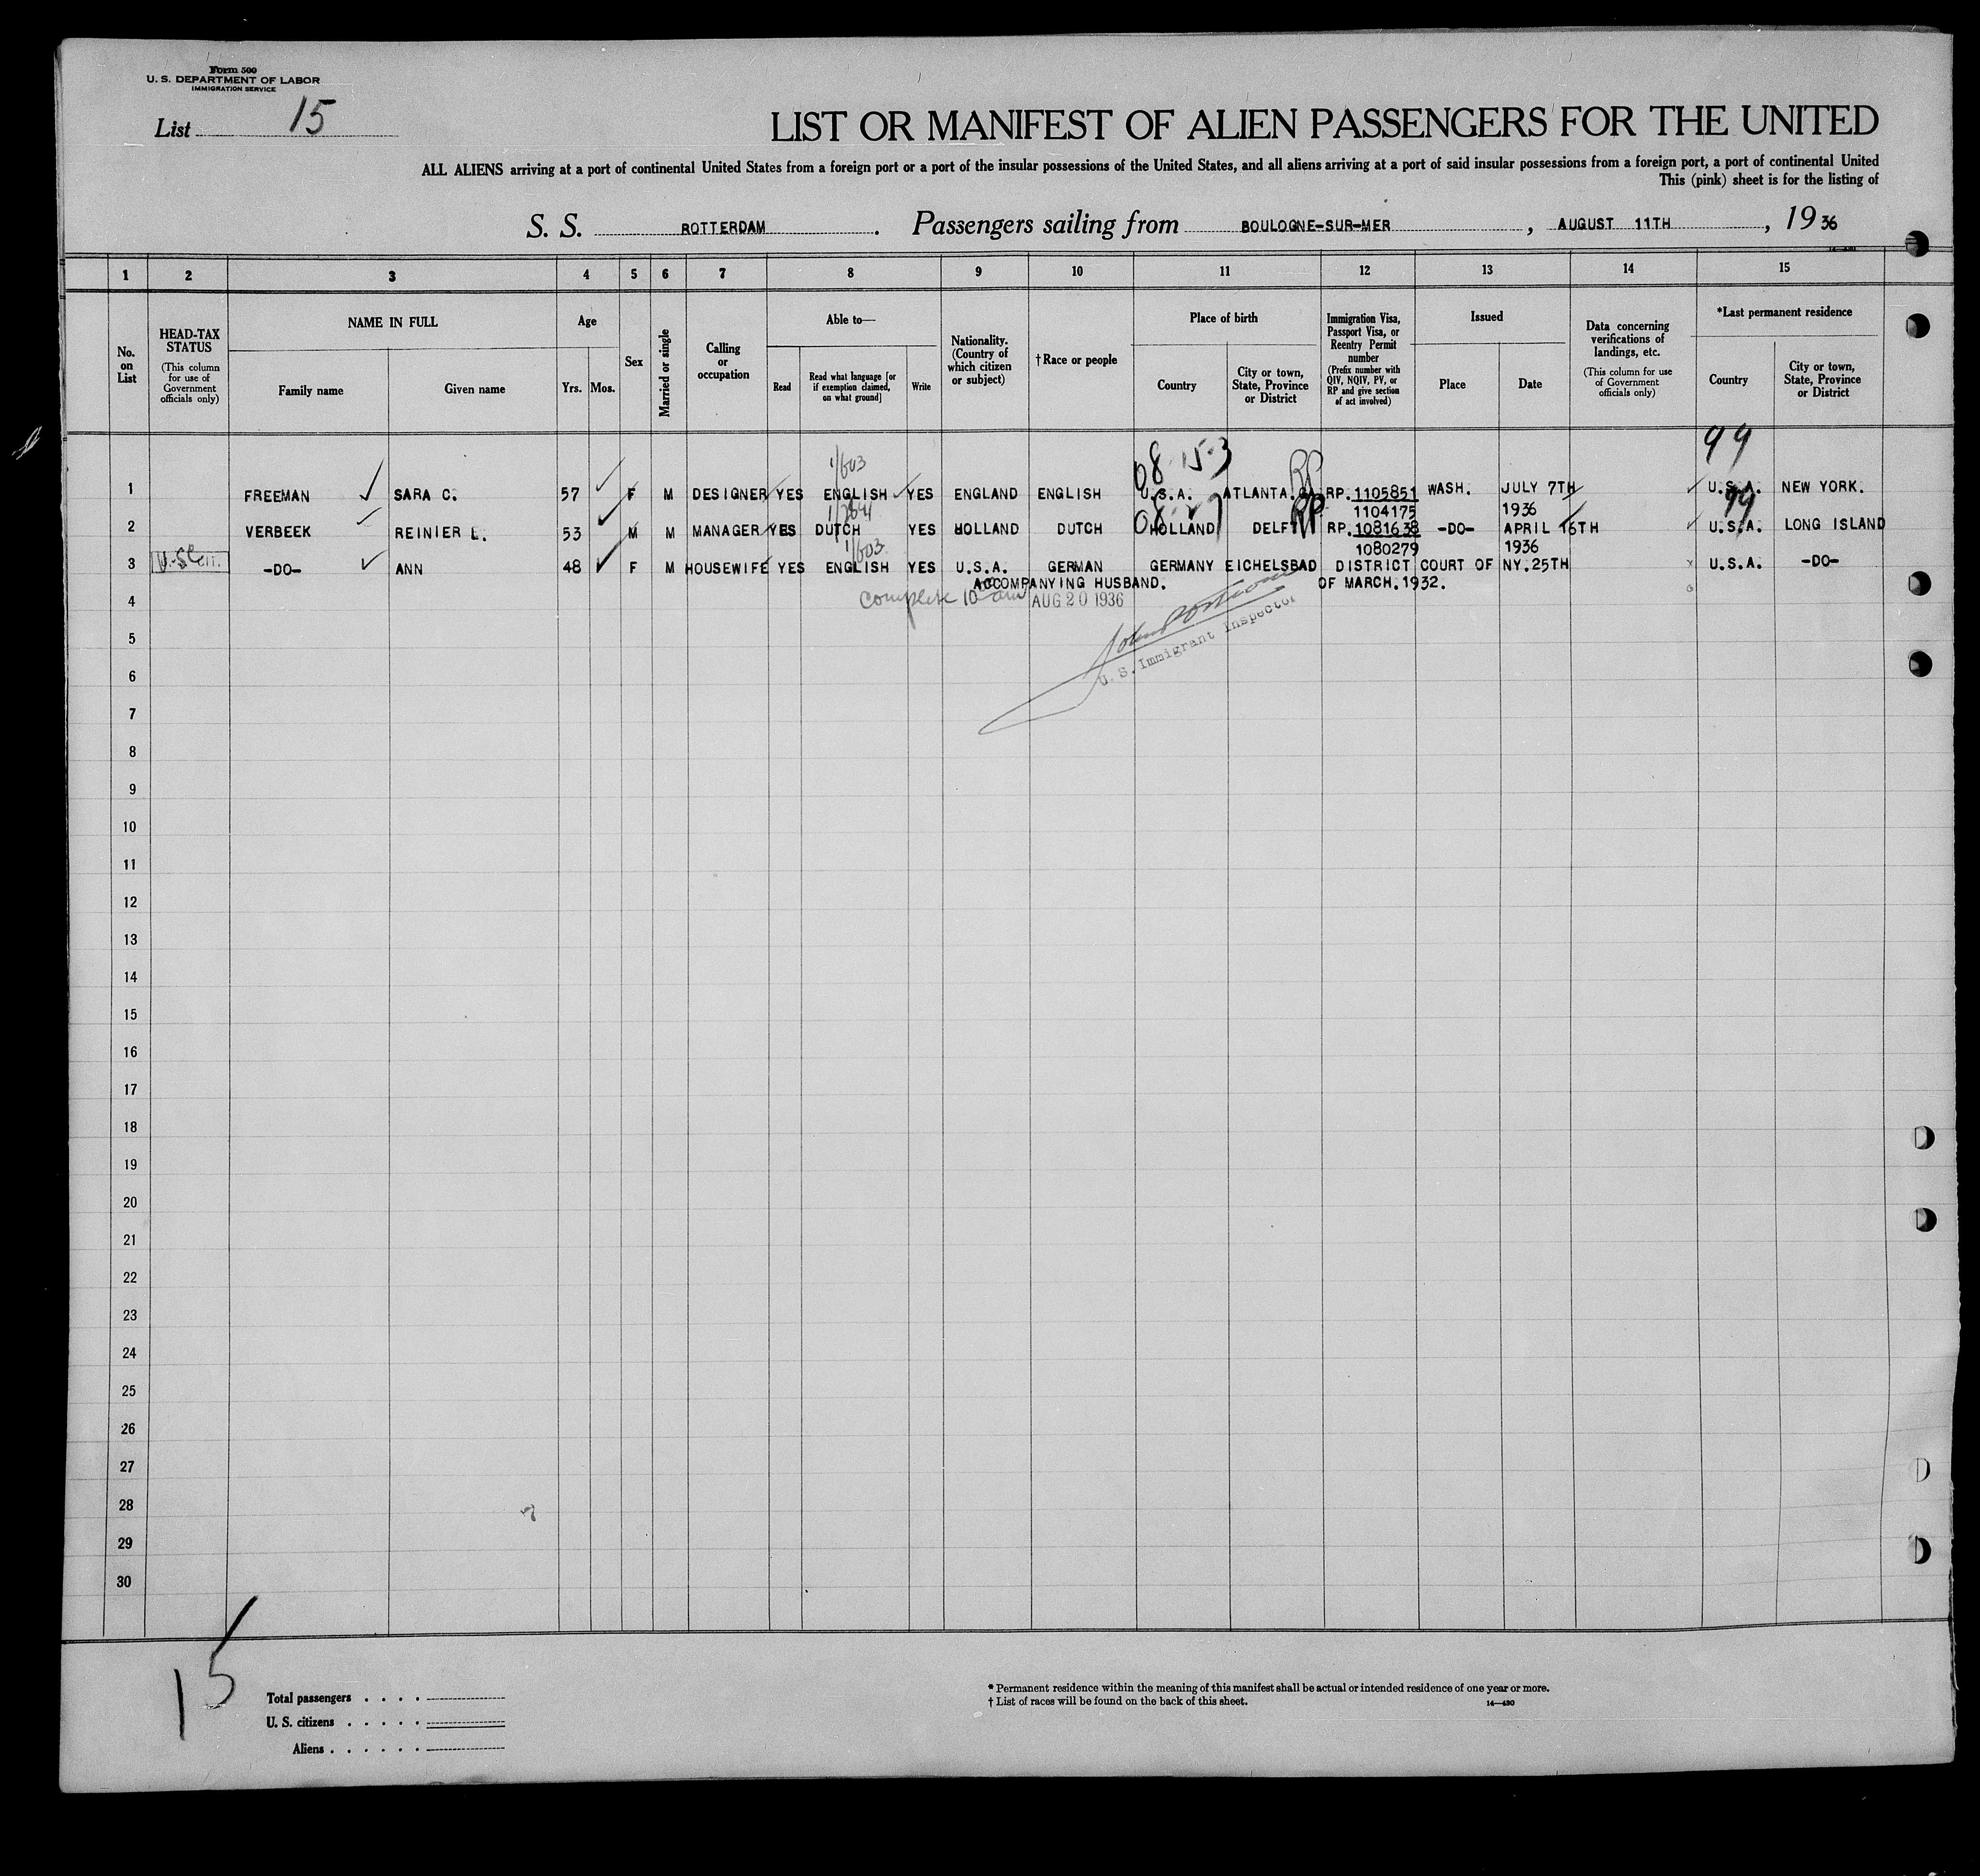 Form 500
U. S. DEPARTMENT OF LABOR
IMMIGRATION SERVICE
List 15
LIST OR MANIFEST OF ALIEN PASSENGERS FOR THE UNITED
ALL ALIENS arriving at a port of continental United States from a foreign port or a port of the insular possessions of the United States, and all aliens arriving at a port of said insular possessions from a foreign port, a port of continental United
This (pink) sheet is for the listing of
S. S. ROTTERDAM. Passengers sailing from BOULOGNE-SUR-MER, AUGUST 11TH, 1936
1 2 3 4 5 6 7 8 9 10 11 12 13 14 15
No. on List
HEAD-TAX STATUS
(This column for use of Government officials only)
NAME IN FULL
Family name
Given name
Age
Yrs. Mos.
Sex
Married or single
Calling or occupation
Able to—
Read
Read what language [or if exemption claimed, on what ground]
Write
Nationality. (Country of which citizen or subject)
†Race or people
Place of birth
Country
City or town, State, Province or District
Immigration Visa, Passport Visa, or Reentry Permit number
(Prefix number with QIV, NQIV, PV, or RP and give section of act involved)
Issued
Place
Date
Data concerning verifications of landings, etc.
(This column for use of Government officials only)
*Last permanent residence
Country
City or town, State, Province or District
1/603 08 15-3 RP 99
1 FREEMAN SARA C. 57 F M DESIGNER YES ENGLISH YES ENGLAND ENGLISH U.S.A. ATLANTA.GA RP. 1105851 WASH. JULY 7TH U.S.A. NEW YORK.
1104175 1936
99
2 VERBEEK REINIER L. 53 M M MANAGER YES DUTCH YES HOLLAND DUTCH HOLLAND DELFT RP. 1081638 -DO- APRIL 16TH U.S.A. LONG ISLAND
1/603 1080279 1936
3 U.S. CIT. -DO- ANN 48 F M HOUSEWIFE YES ENGLISH YES U.S.A. GERMAN GERMANY EICHELSBAD DISTRICT COURT OF NY.25TH U.S.A. -DO-
ACCOMPANYING HUSBAND. OF MARCH.1932.
4 complete 10 am AUG 20 1936
U. S. Immigrant Inspector
5
6
7
8
9
10
11
12
13
14
15
16
17
18
19
20
21
22
23
24
25
26
27
28
29
30
15
Total passengers
U. S. citizens
Aliens
* Permanent residence within the meaning of this manifest shall be actual or intended residence of one year or more.
† List of races will be found on the back of this sheet.
14—430